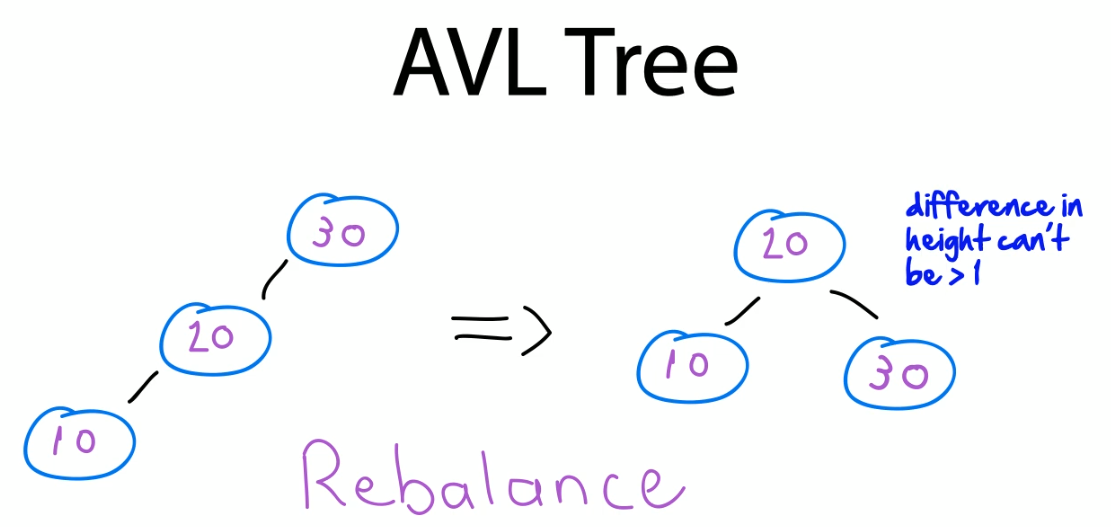 AVL Tree
30
20
10
20
10
30
difference in
height can't
be > 1
Rebalance